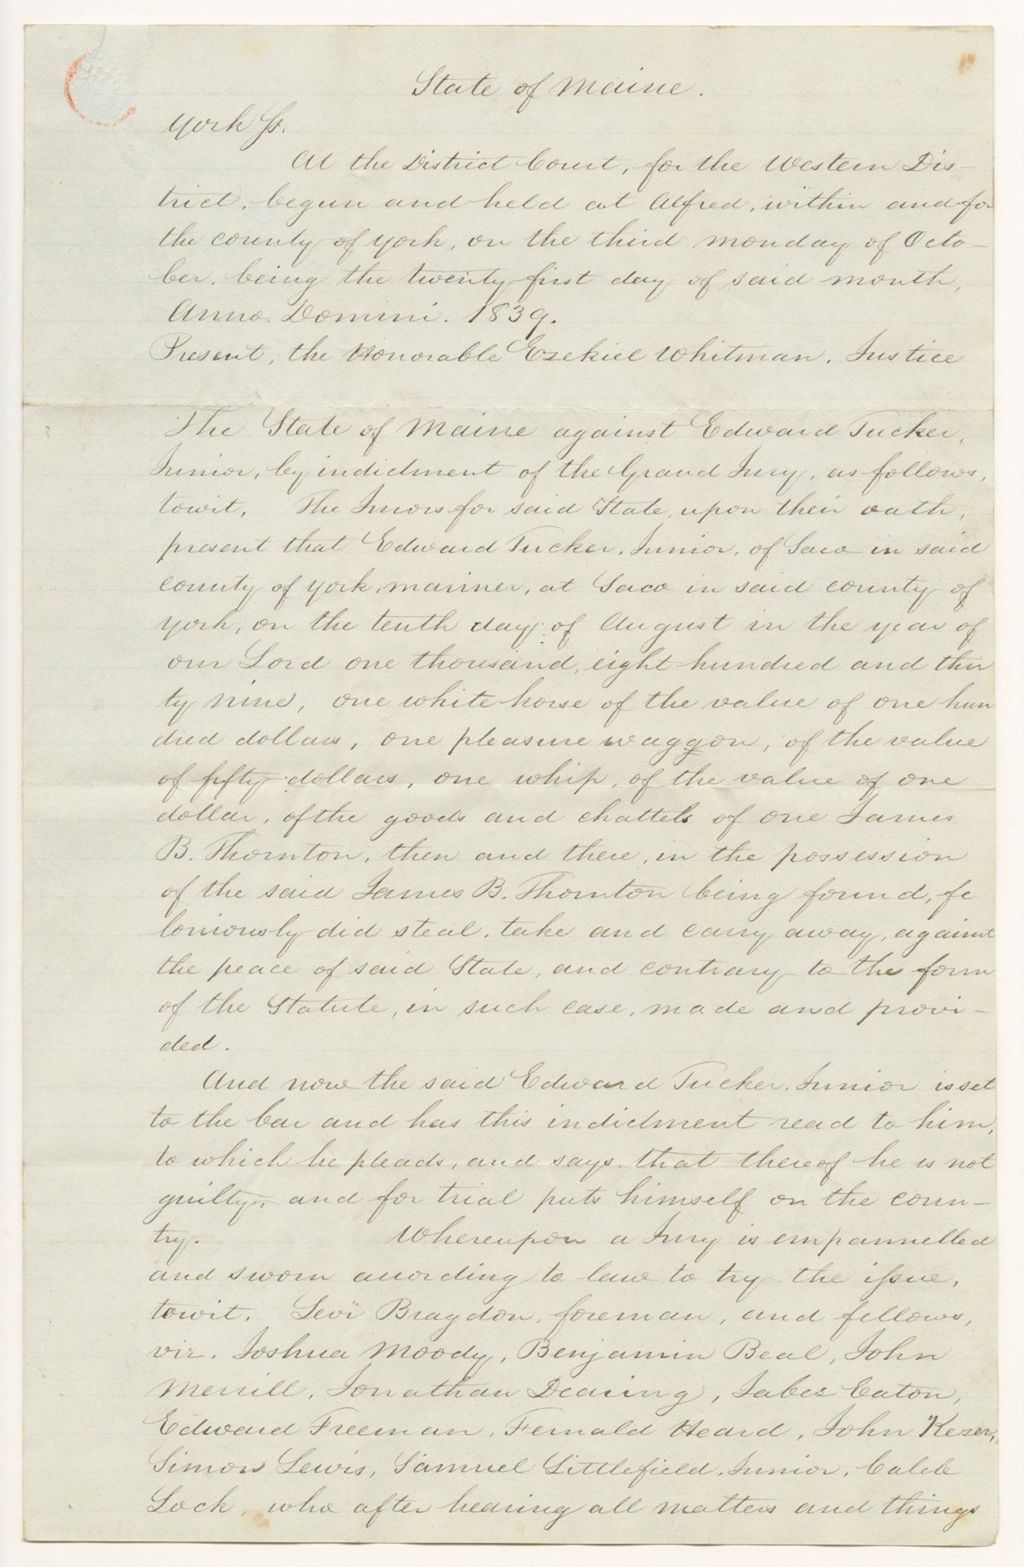 State of Maine.
York Ss.
At the District Court, for the Western Dis-
trict, begun and held at Alfred, within and for
the county of York, on the third monday of Octo-
ber, being the twenty first day of said month,
Anno Domini. 1839.
Present, the Honorable Ezekiel Whitman, Justice
The State of Maine against Edward Tucker,
Junior, by indictment of the Grand Jury, as follows,
towit. The Jurors for said State, upon their oath,
present that Edward Tucker, Junior, of Saco in said
county of York, mariner, at Saco in said county of
York, on the tenth day of August in the year of
our Lord one thousand, eight hundred and thir
ty nine, one white horse of the value of one hun
dred dollars, one pleasure waggon, of the value
of fifty dollars, one whip, of the value of one
dollar, of the goods and chattels of one James
B. Thornton, then and there, in the possession
of the said James B. Thornton being found, fe
loniously did steal, take and carry away, against
the peace of said State, and contrary to the form
of the Statute, in such case, made and provi-
ded.
And now the said Edward Tucker, Junior is set
to the bar and has this indictment read to him,
to which he pleads, and says, that thereof he is not
guilty, and for trial puts himself on the coun-
try. Whereupon a Jury is empannelled
and sworn according to law to try the issue,
towit. Levi Bragdon, foreman, and fellows,
viz. Joshua Moody, Benjamin Beal, John
Merrill, Jonathan Dearing, Jabez Eaton,
Edward Freeman, Fernald Heard, John Kezer,
Simon Lewis, Samuel Littlefield, Junior, Caleb
Lock, who after hearing all matters and things